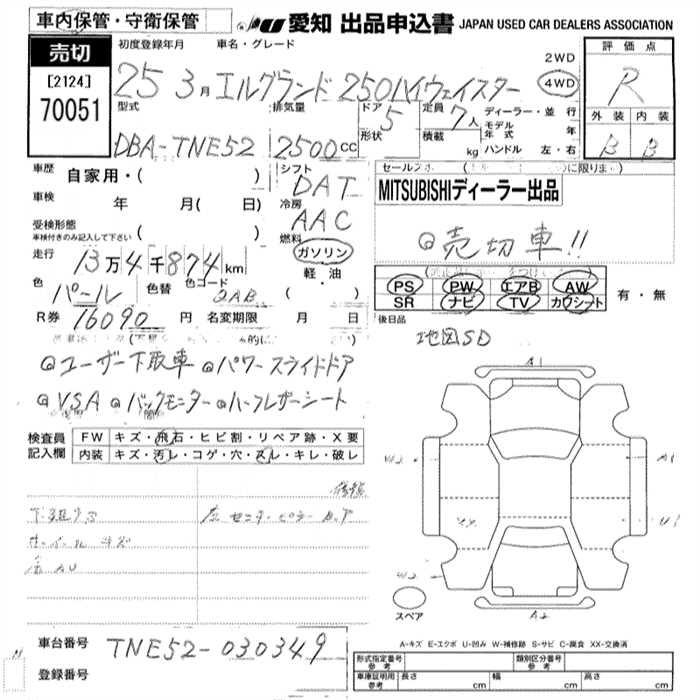 車内保管・守衛保管 愛知 出品申込書 JAPAN USED CAR DEALERS ASSOCIATION
売切
[2124]
70051
初度登録年月 車名・グレード
25 3月 エルグランド 250ハイウェイスター
2WD
4WD
評価点
R
外装 内装
B B
型式 排気量 ドア 5 定員 7人 ディーラー・並行
形状 積載 kg モデル年式 年
ハンドル 左・右
DBA-TNE52 2500cc
車歴 自家用・( )
シフト DAT
車検 年 月( 日)
冷房 AAC
受検形態 ( )
車検付きのみ記入して下さい
燃料 ガソリン
軽・油
( )
走行 13万4千874km
色 パール 色替 色コード 2AB
R券 16090円 名変期限 月 日
MITSUBISHIディーラー出品
◎売切車!!
PS PW エアB AW
SR ナビ TV カワシート
有・無
後日品
地図SD
◎ユーザー下取車 ◎パワースライドドア
◎VSA ◎バックモニター ◎ハーフレザーシート
検査員記入欄
FW キズ・飛石・ヒビ割・リペア跡・X要
内装 キズ・汚レ・コゲ・穴・スレ・キレ・破レ
A1
W2
A2
スペア
A-キズ E-エクボ U-凹み W-補修跡 S-サビ C-腐食 XX-交換済
車台番号 TNE52-030349
登録番号
形式指定番号 参考 類別区分番号 参考
車庫証明用 参考 長さ cm 幅 cm 高さ cm